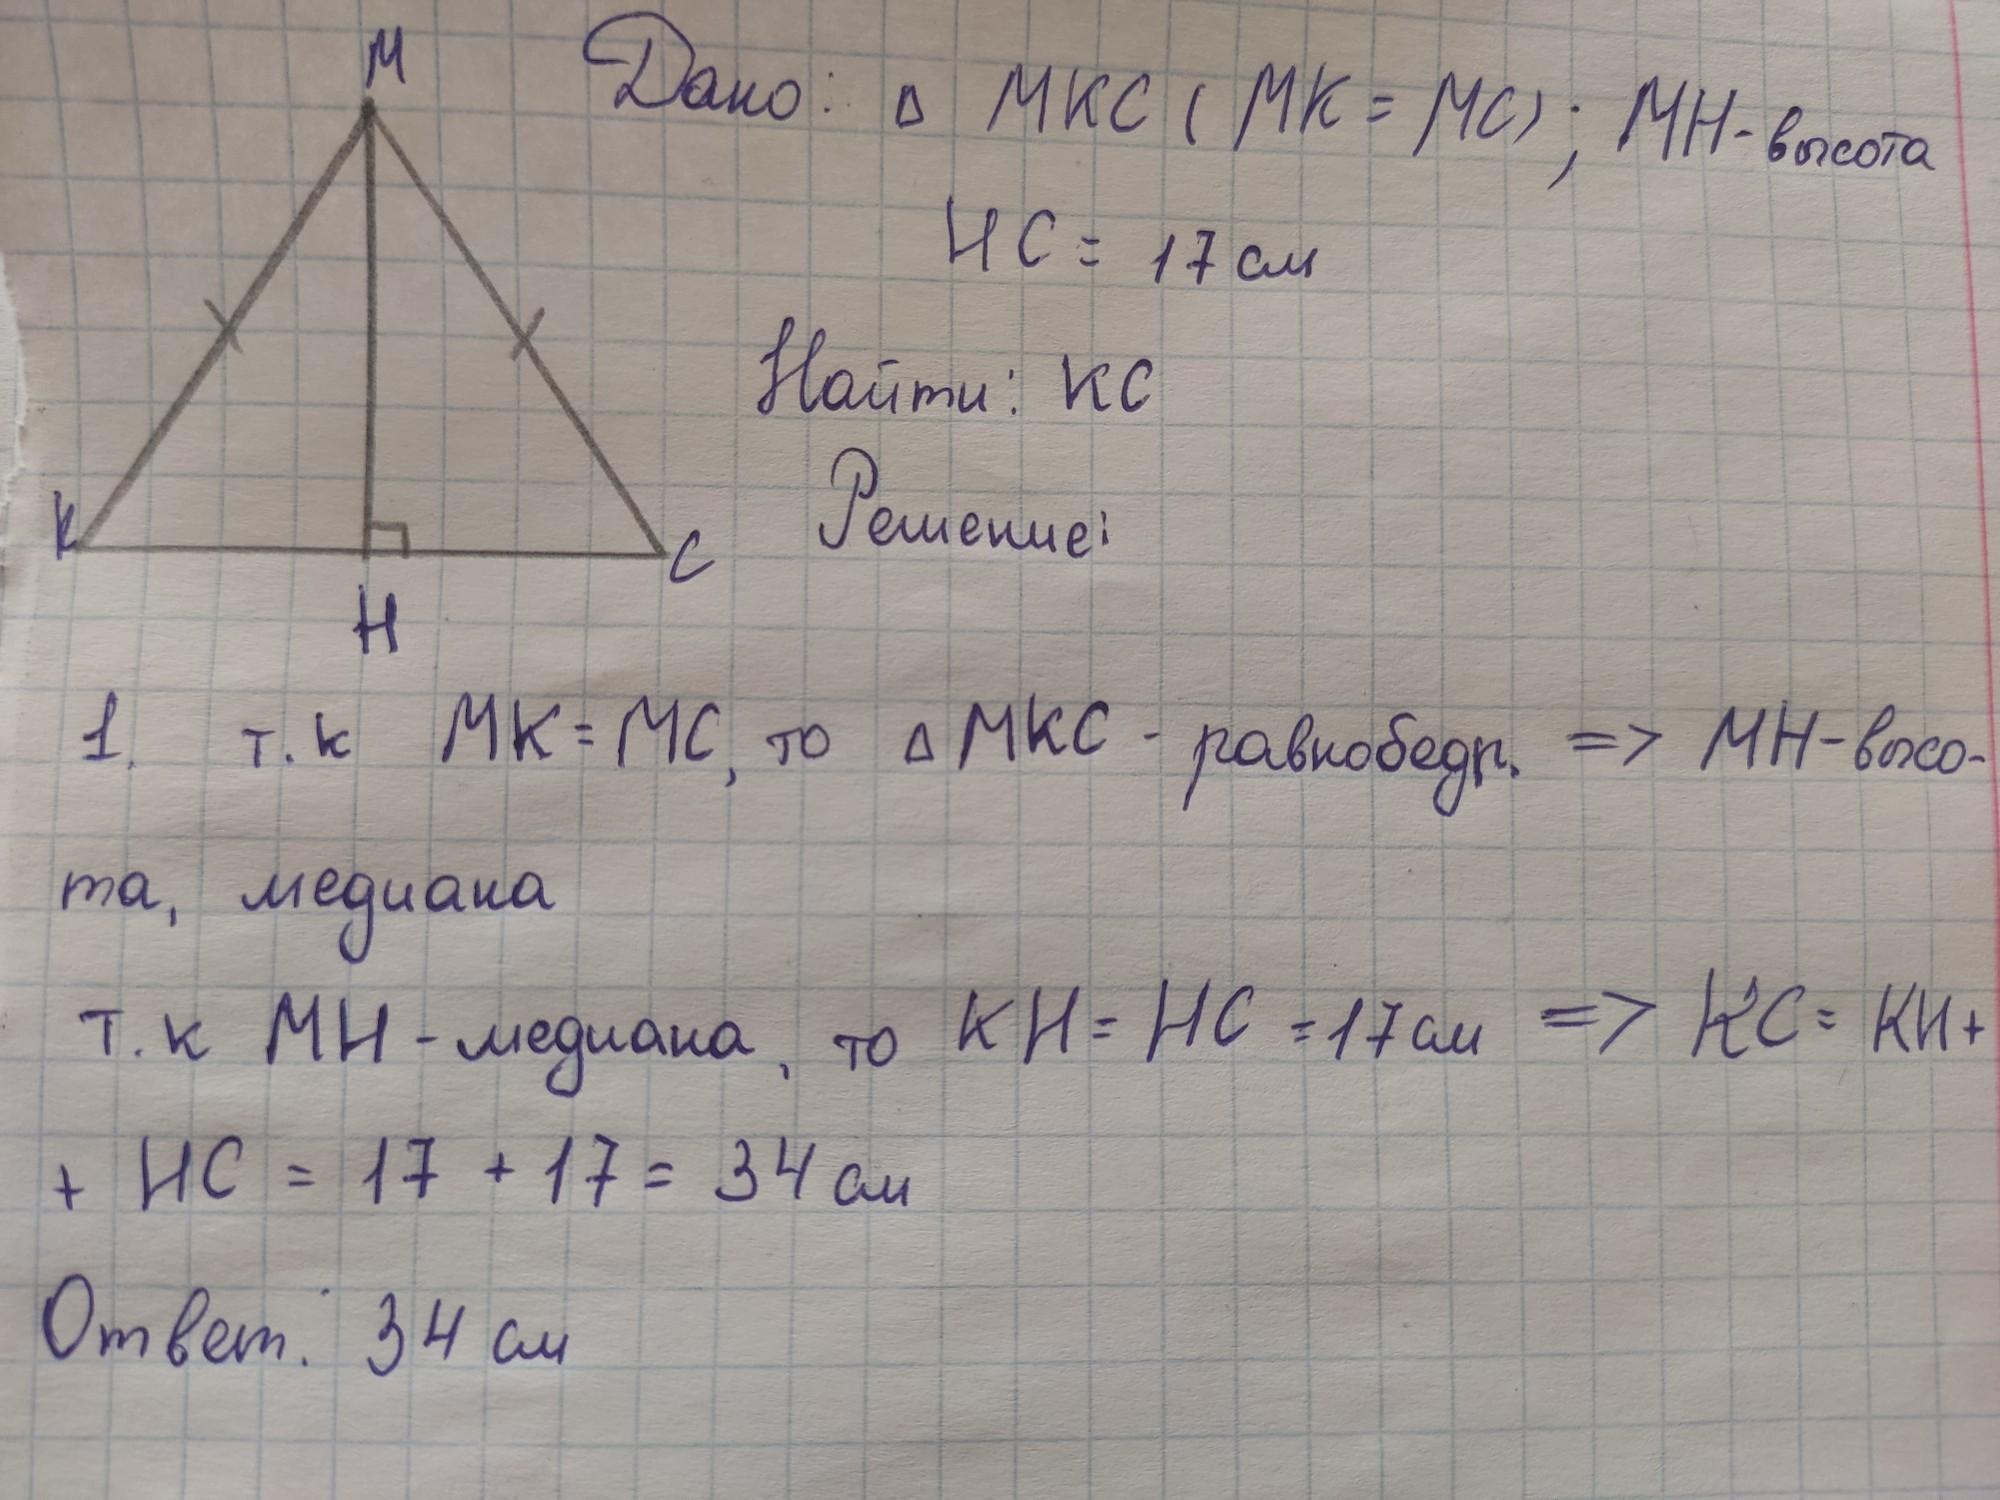 M
Дано: Δ MKC (MK = MC); MH - высота
HC = 17 см
Найти: KC
K
C
Решение:
H
1. т.к MK = MC, то Δ MKC - равнобедр. => MH - высо-
та, медиана
т.к MH - медиана, то KH = HC = 17 см => KC = KH +
+ HC = 17 + 17 = 34 см
Ответ: 34 см